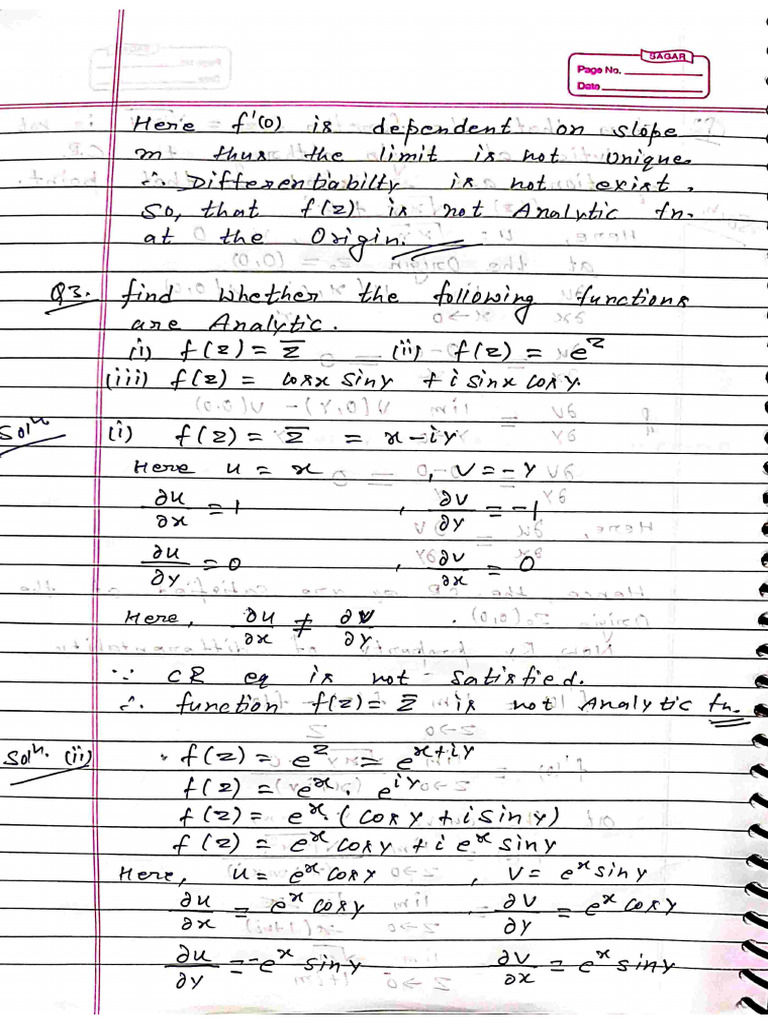 SAGAR
Page No.
Date
Here f'(0) is dependent on slope
m thus the limit is not unique.
∴ Differentiabilty is not exist.
So, that f(z) is not Analytic fn.
at the Origin.
Q3. find whether the following functions
are Analytic.
(i) f(z) = z̅ (ii) f(z) = e^z
(iii) f(z) = cosx siny + i sinx cosy.
Solⁿ (i) f(z) = z̅ = x-iy
Here u = x , v = -y
∂u/∂x = 1 , ∂v/∂y = -1
∂u/∂y = 0 , ∂v/∂x = 0
Here, ∂u/∂x ≠ ∂v/∂y .
∵ CR eq is not satisfied.
∴ function f(z) = z̅ is not Analytic fn.
Solⁿ. (ii) f(z) = e^z = e^(x+iy)
f(z) = e^x. e^(iy)
f(z) = e^x. (cosy + i siny)
f(z) = e^x cosy + i e^x siny
Here, u = e^x cosy , v = e^x siny
∂u/∂x = e^x cosy ∂v/∂y = e^x cosy
∂u/∂y = -e^x siny ∂v/∂x = e^x siny